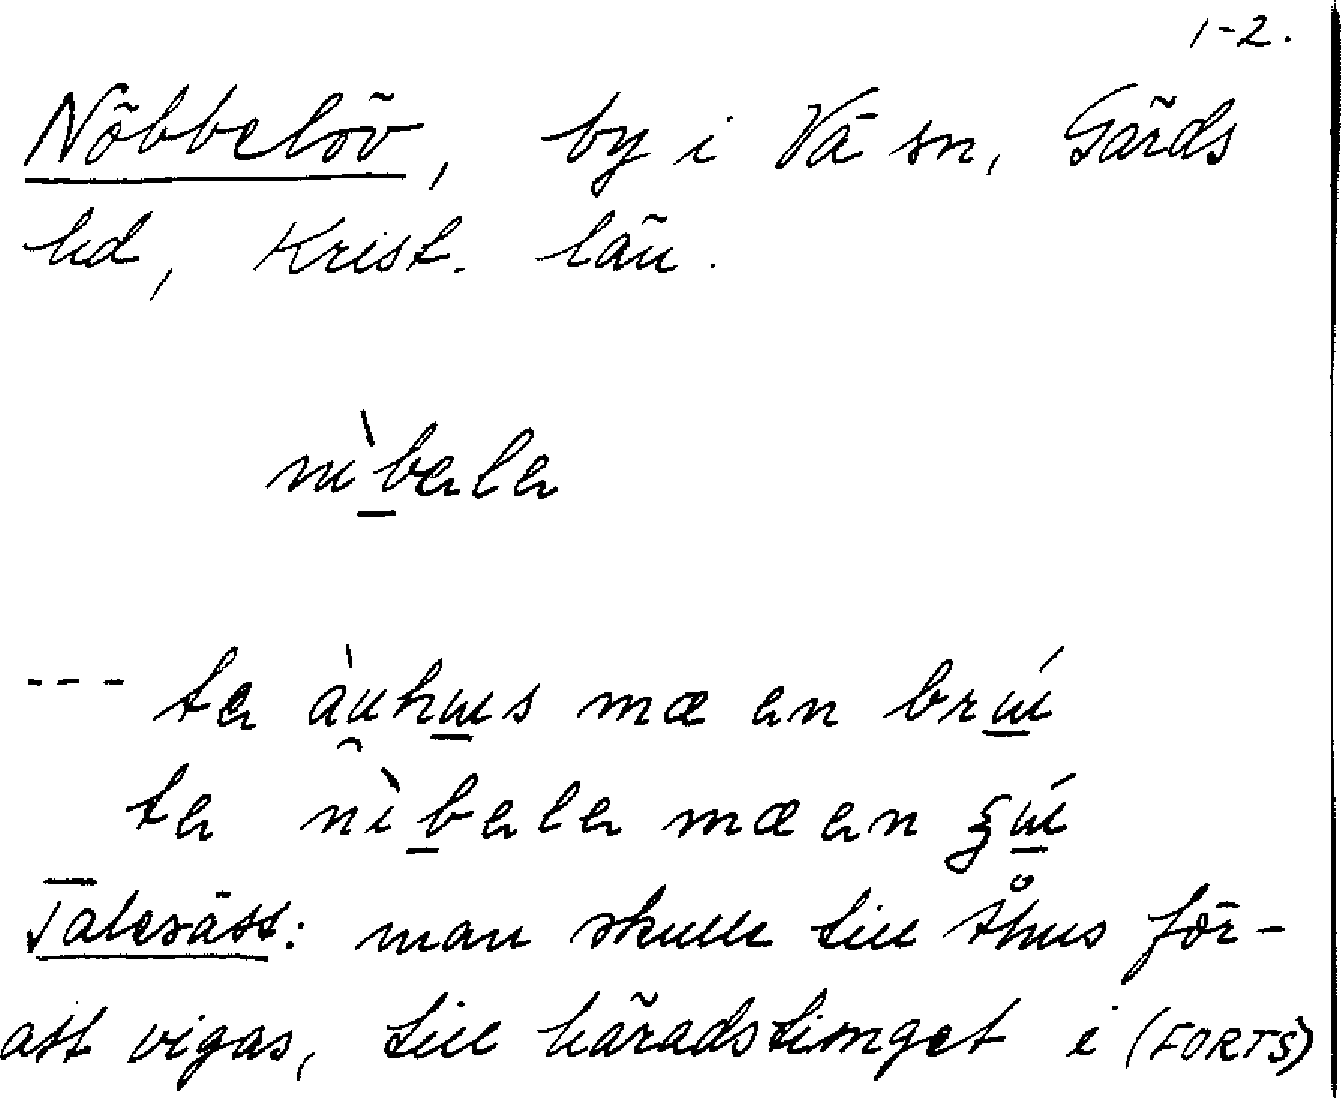 1-2.
Nöbbelöv, by i Vä sn, Gärds
hd, Krist. län.
nìbələ
--- tə àuhus mæ ən brú
tə nìbələ mæ ən ʒú
Talesätt: man skulle till Åhus för-
att vigas, till häradstinget i (FORTS)